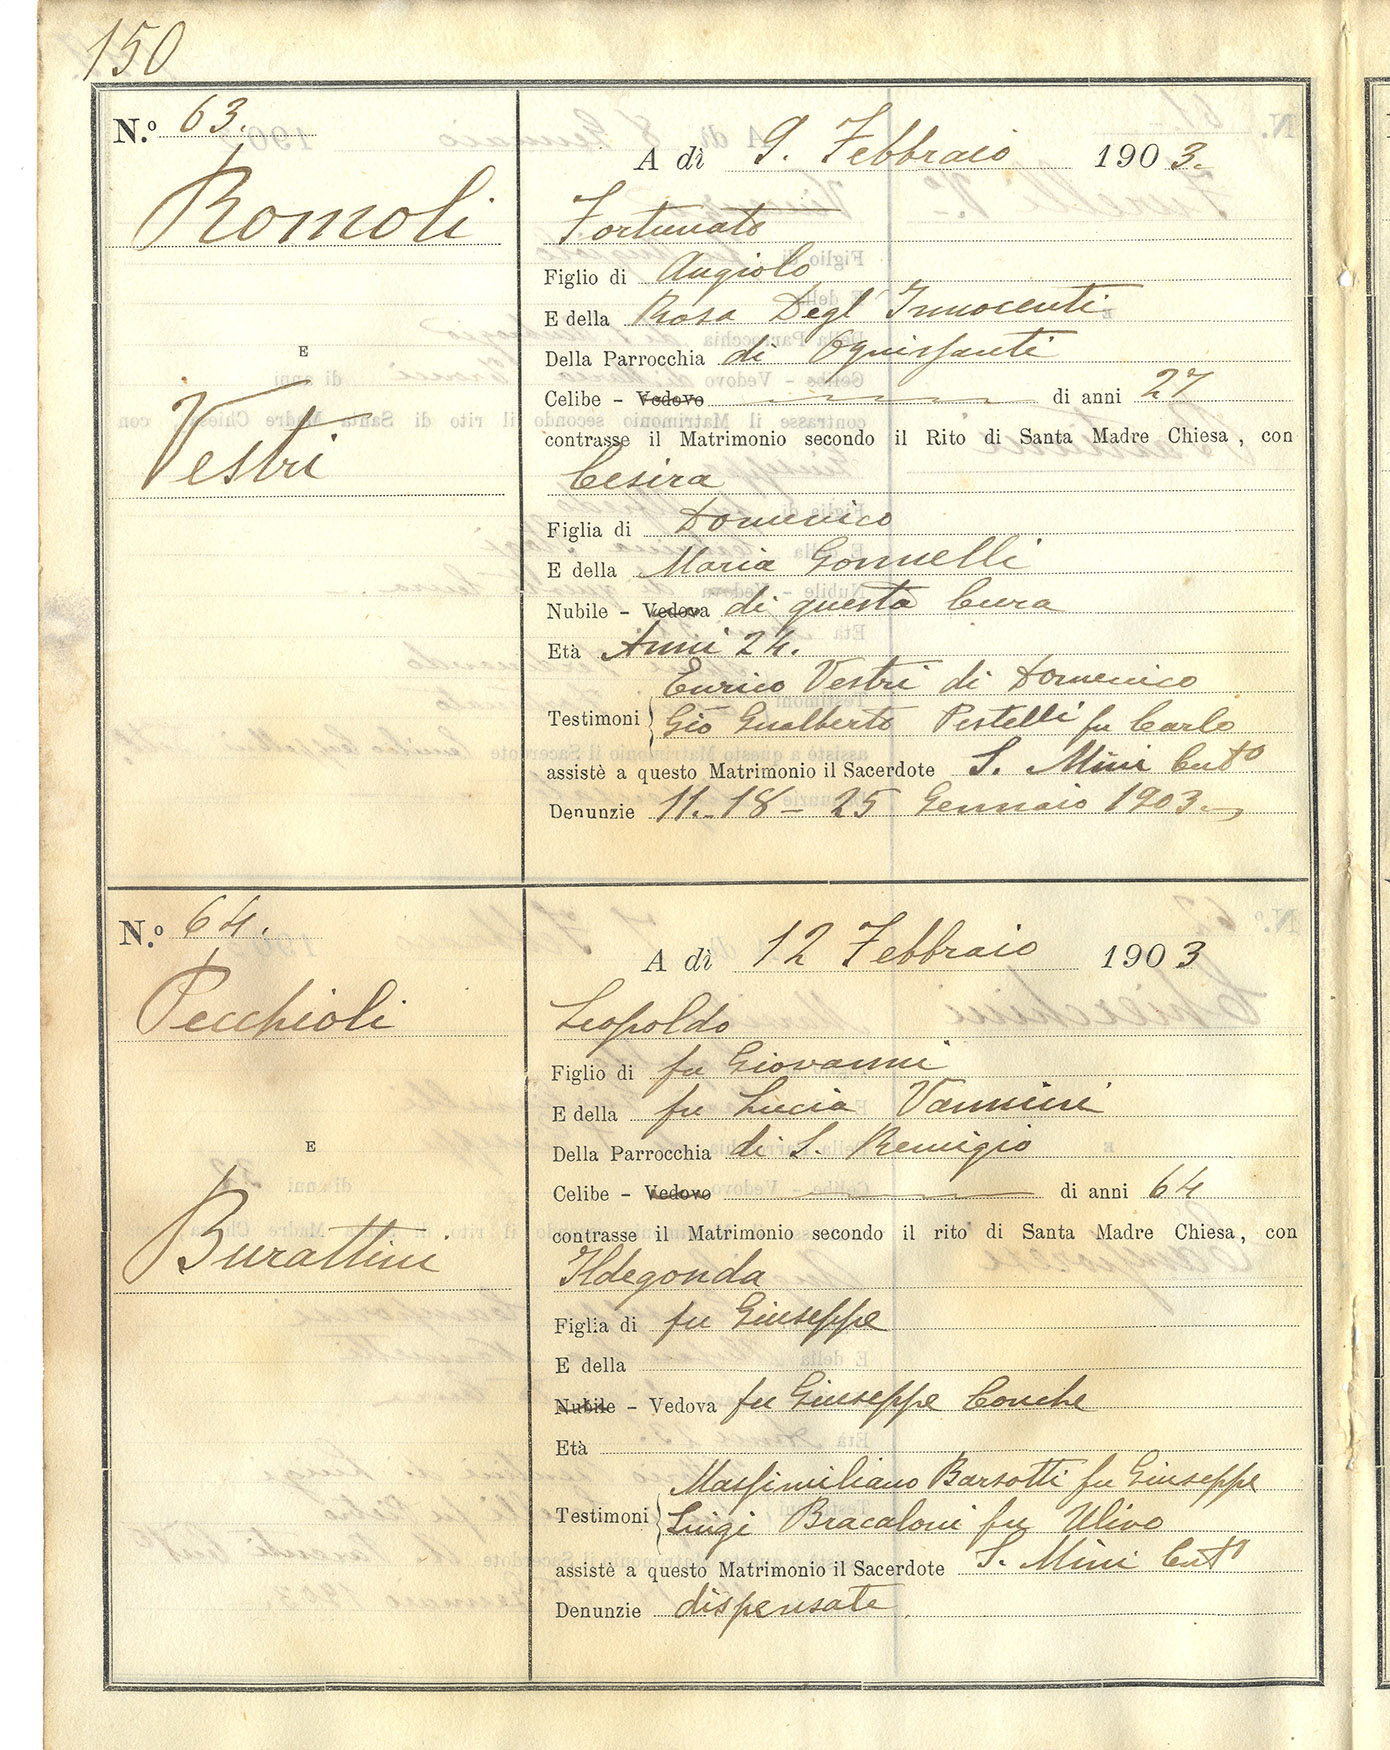 150
N.º 63.
A dì 9. Febbraio 1903.
Romoli
Fortunato
Figlio di Angiolo
E della Rosa Degl'Innocenti
Della Parrocchia di Ognissanti
E
Celibe - Vedovo di anni 27
Vestri
contrasse il Matrimonio secondo il Rito di Santa Madre Chiesa, con
Cesira
Figlia di Domenico
E della Maria Gonnelli
Nubile - Vedova di questa Cura
Età Anni 24.
Enrico Vestri di Domenico
Testimoni Gio Gualberto Pestelli fu Carlo
assistè a questo Matrimonio il Sacerdote S. Mini Cuto
Denunzie 11.-18-25 Gennaio 1903.
N.º 64.
A dì 12 Febbraio 1903
Pecchioli
Leopoldo
Figlio di fu Giovanni
E della fu Lucia Vannini
Della Parrocchia di S. Remigio
E
Celibe - Vedovo di anni 64
contrasse il Matrimonio secondo il rito di Santa Madre Chiesa, con
Burattini
Ildegonda
Figlia di fu Giuseppe
E della
Nubile - Vedova fu Giuseppe Conche
Età
Massimiliano Barsotti fu Giuseppe
Testimoni Luigi Bracaloni fu Ulivo
assistè a questo Matrimonio il Sacerdote S. Mini Cuto
Denunzie dispensate